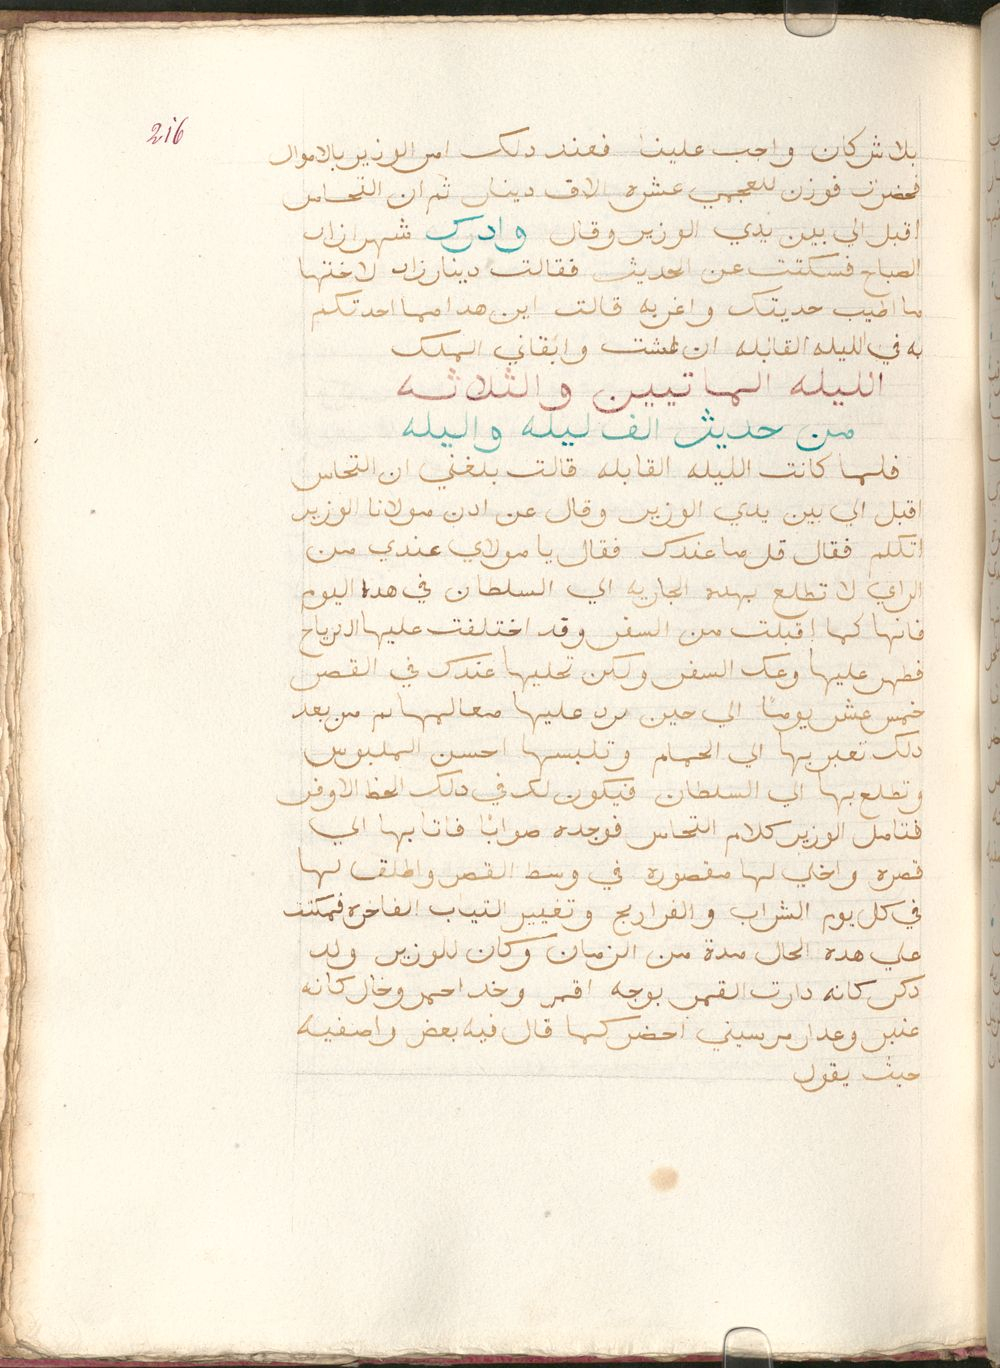 216
بلاش كان واجب علينا فعند دلك امر الوزير بالاموال
فحضرت فوزن للعجمي عشره الاف دينار ثم ان النحاس
اقبل الي بين يدي الوزير وقال وادرك شهرازاد
الصباح فسكتت عن الحديث فقالت دينارزاد لاختها
ما اطيب حديتك واغربه قالت اين هدا مما احدتكم
به في الليله القابله ان عشت وابقاني الملك
الليله الماتيين والثلاثه
من حديث الف ليله واليله
فلما كانت الليله القابله قالت بلغني ان النحاس
اقبل الي بين يدي الوزير وقال عن ادن مولانا الوزير
اتكلم فقال قل ما عندك فقال يا مولاي عندي من
الراي لا تطلع بهده الجاريه الي السلطان في هدا اليوم
فانها كما اقبلت من السفر وقد اختلفت عليها الارياح
فطهر عليها وعك السفر ولكن تخليها عندك في القصر
خمس عشر يومًا الي حين يرد عليها معالمها تم من بعد
دلك تعبر بها الي الحمام وتلبسها احسن الملبوس
وتطلع بها الي السلطان فيكون لك في دلك الحظ الاوفر
فتامل الوزير كلام النحاس فوجده صوابًا فاتا بها الي
قصره واخلي لها مقصوره في وسط القصر واطلق لها
في كل يوم الشراب والفراريج وتغيير التياب الفاخره فمكتت
علي هده الحال مدة من الزمان وكان للوزير ولد
دكر كانه دارت القمر بوجه اقمر وخد احمر وخال كانه
عنبر وعدار مرسيني اخضر كما قال فيه بعض واصفيه
حيث يقول